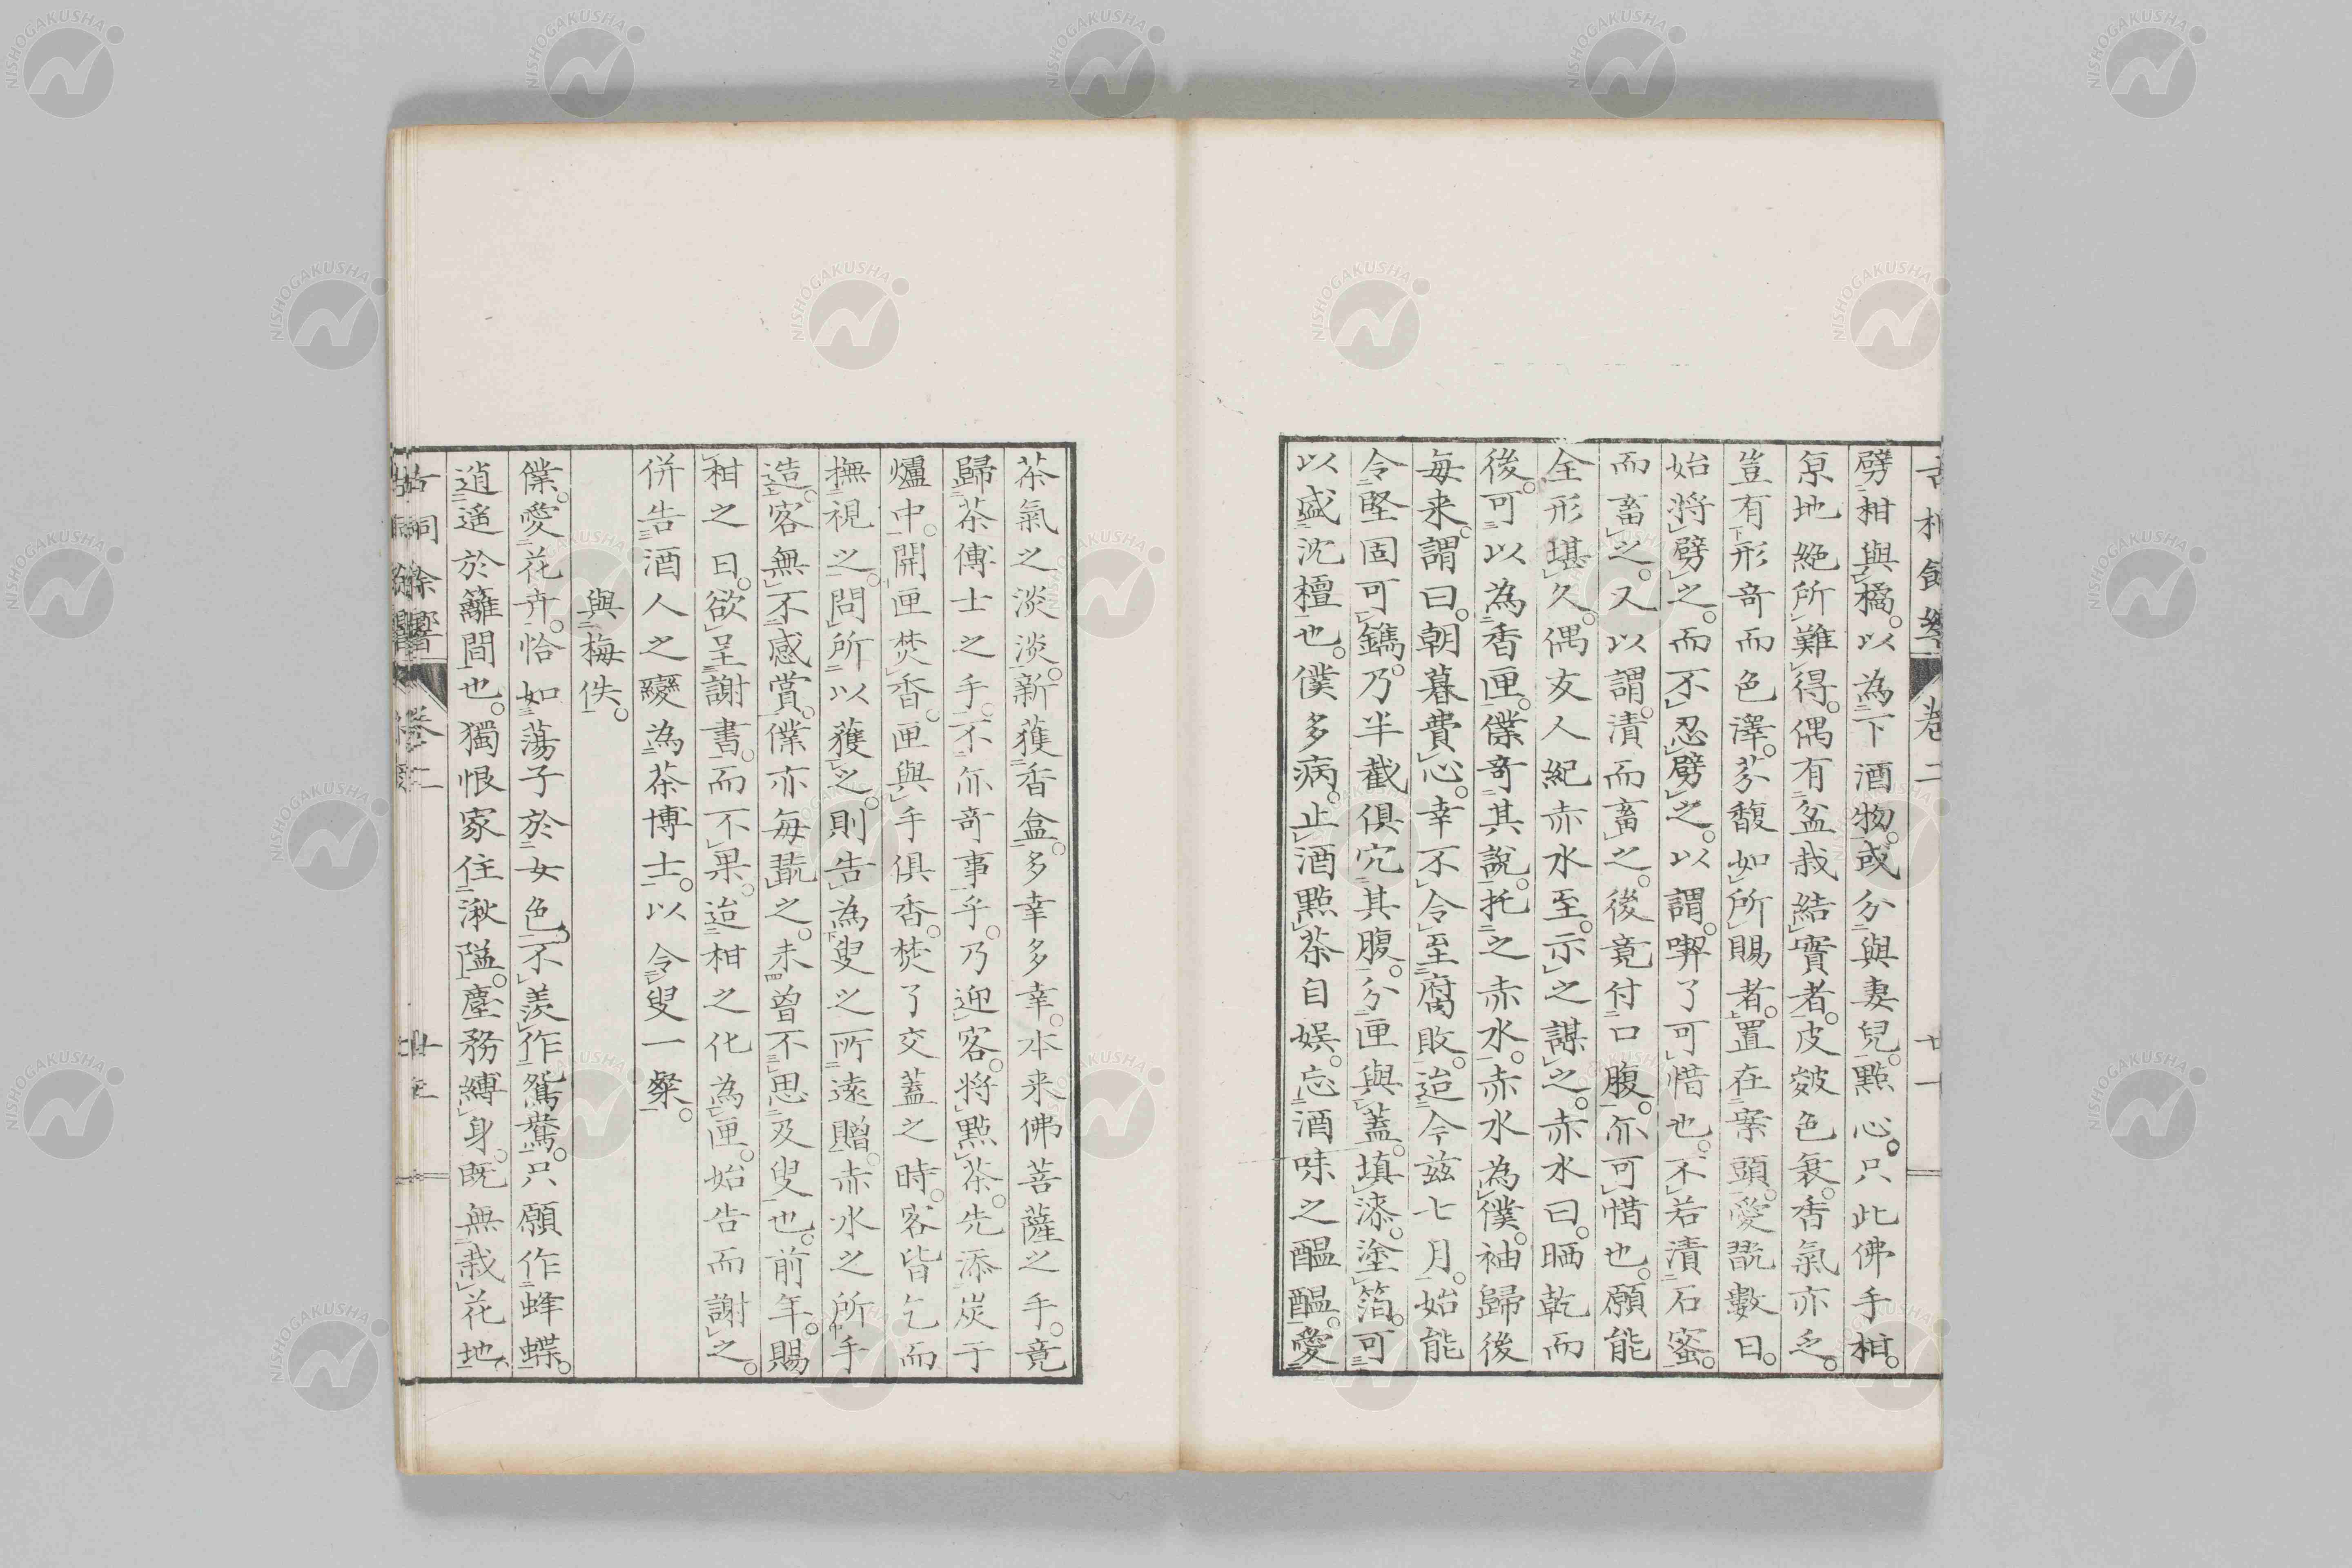 劈柑與橘。以為下酒物。或分與妻兒點心。只此佛手柑。
京地絕所難得。偶有盆栽結實者。皮皴色衰。香氣亦乏。
豈有形奇而色澤。芬馥如所賜者。置在案頭。愛翫數日。
始將劈之。而不忍劈之。以謂。喫了可惜也。不若漬石蜜。
而畜之。又以謂。漬而畜之。後竟付口腹。亦可惜也。願能
全形堪久。偶友人紀赤水至。示之謀之。赤水曰。晒乾而
後。可以為香匣。僕奇其說。托之赤水。赤水為僕。袖歸後
每来。謂曰。朝暮費心。幸不令至腐敗。迨今茲七月。始能
令堅固可鐫。乃半截俱穴其腹。分匣與蓋。填漆。塗箔。可
以盛沈檀也。僕多病。止酒點茶自娛。忘酒味之醞醞。愛
茶氣之淡淡。新獲香盒。多幸多幸。本来佛菩薩之手。竟
歸茶博士之手。不亦奇事乎。乃迎客。將點茶。先添炭于
爐中。開匣焚香。匣與手俱香。焚了交蓋之時。客皆乞而
撫視之。問所以獲之。則告為叟之所遠贈。赤水之所手
造。客無不感賞。僕亦每翫之。未曾不思及叟也。前年。賜
柑之日。欲呈謝書。而不果。迨柑之化為匣。始告而謝之。
併告酒人之變為茶博士。以令叟一粲。
與梅佚。
僕。愛花卉。恰如蕩子於女色。不羨作鴛鴦。只願作蜂蝶。
逍遙於籬間也。獨恨家住湫隘。塵務縛身。既無栽花地。
卷二